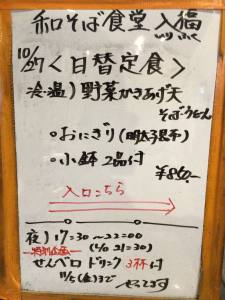 和そば食堂 入福
いりふく
10/27 <日替定食>
冷・温) 野菜かきあげ天
そばうどん
・おにぎり(明太子昆布)
・小鉢 2品付
¥860-
入口こちら
夜) 17:30~22:00
(L/O 21:30)
特別企画
せんべロ ドリンク 3杯付
11/5(金)まで
やってます